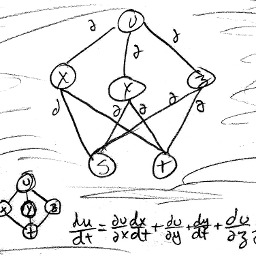 U
∂ ∂ ∂
X Y z
∂ ∂ ∂ ∂ ∂
S t
U
X Y z
t
du/dt = ∂u/∂x dx/dt + ∂u/∂y + dy/dt + du/∂z